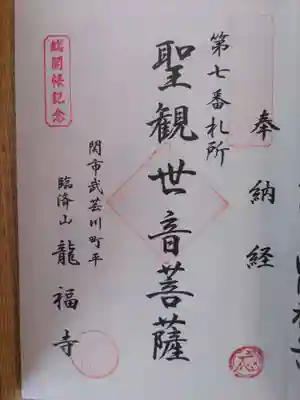 奉納経
第七番札所
聖観世音菩薩
関市武芸川町平
臨済山 龍福寺
臨開帳記念